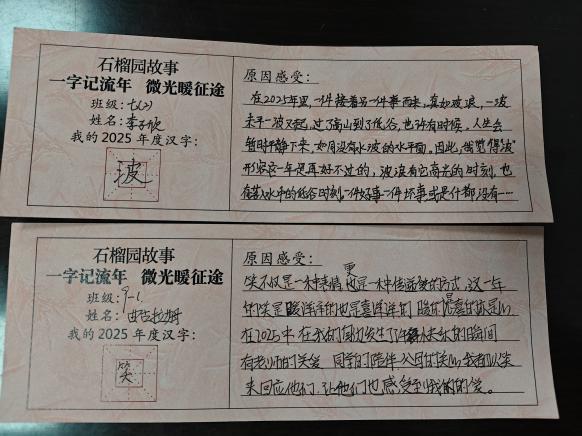 石榴园故事
一字记流年 微光暖征途
班级：七(2)
姓名：李子
我的2025年度汉字：
波
原因感受：
在2025年里，一件接着另一件事而来，真如波浪，一波
未平一波又起，过了高山到了低谷，也许有时候，人生会
暂时平静下来，如同没有水波的水平面。因此，我觉得"波"
形容这一年是再好不过的，波浪有它高亢的时刻，也
有落入水中的低谷时刻。一件好事一件坏事或是什都没有……
石榴园故事
一字记流年 微光暖征途
班级：9-1
姓名：曲古拉姆
我的2025年度汉字：
笑
原因感受：
笑不仅是一种表情更是一种传递爱的方式，这一年
的笑是暖洋洋的也是喜洋洋的
在2025年在我的身边发生了许多快乐的瞬间
有老师的关爱 同学的陪伴 父母的关心，我都以笑
来回应他们，让他们也感受到我的笑。